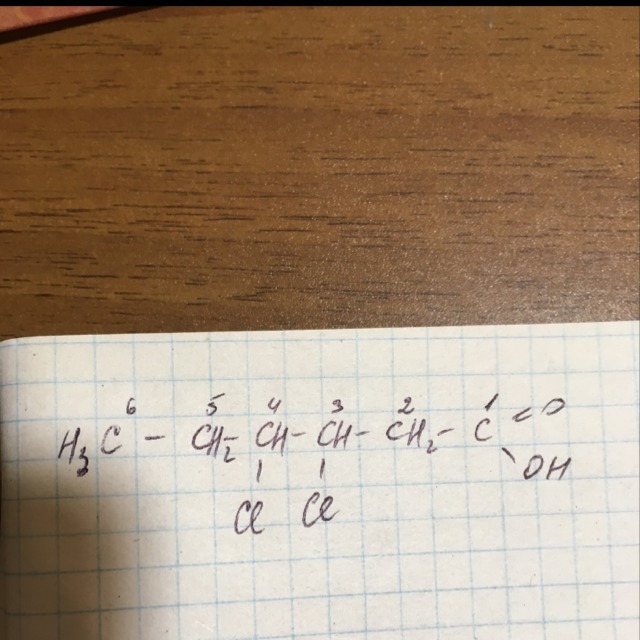 6 5 4 3 2 1
H₃C - CH₂- CH- CH- CH₂- C = O
\ OH
Cl Cl